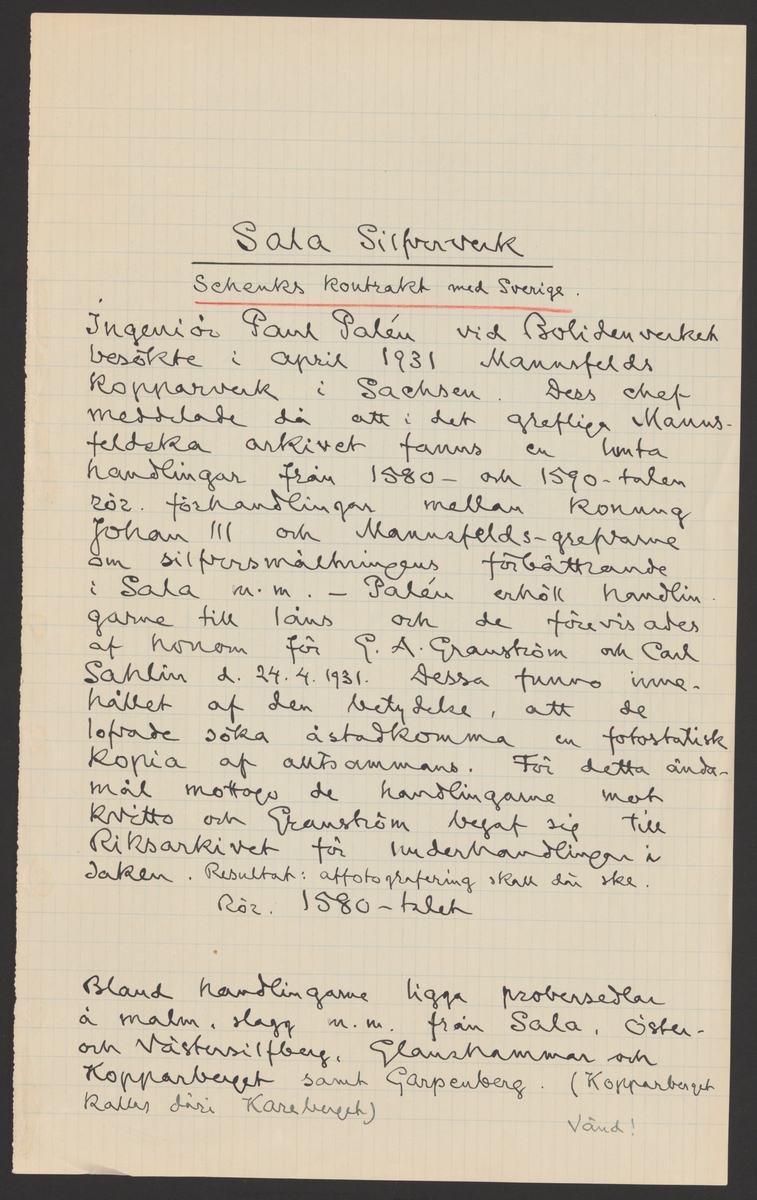 Sala Silfververk
Schenks kontrakt med Sverige.
Ingeniör Paul Palén vid Bolidenverket
besökte i april 1931 Mannsfelds
Kopparverk i Sachsen. Dess chef
meddelade då att i det grefliga Manns-
feldska arkivet fanns en lunta
handlingar från 1580- och 1590-talen
rör. förhandlingar mellan konung
Johan III och Mannsfelds-grefvarne
om silfversmältningens förbättrande
i Sala m.m. - Palén erhöll handlin-
garne till låns och de förevisades
af honom för G. A. Granström och Carl
Sahlin d. 24.4.1931. Dessa funno inne-
hållet af den betydelse, att de
lofvade söka åstadkomma en fotostatisk
kopia af alltsammans. För detta ända-
mål mottogo de handlingarne mot
kvitto och Granström begaf sig till
Riksarkivet för underhandlingar i
saken. Resultat: affotografering skall där ske.
Rör. 1580-talet
Bland handlingarne ligga probersedlar
å malm, slagg m.m. från Sala, Öster-
och Västersilfberg, Glanshammar och
Kopparberget samt Garpenberg. (Kopparberget
kallas däri Kareberget)
Vänd!